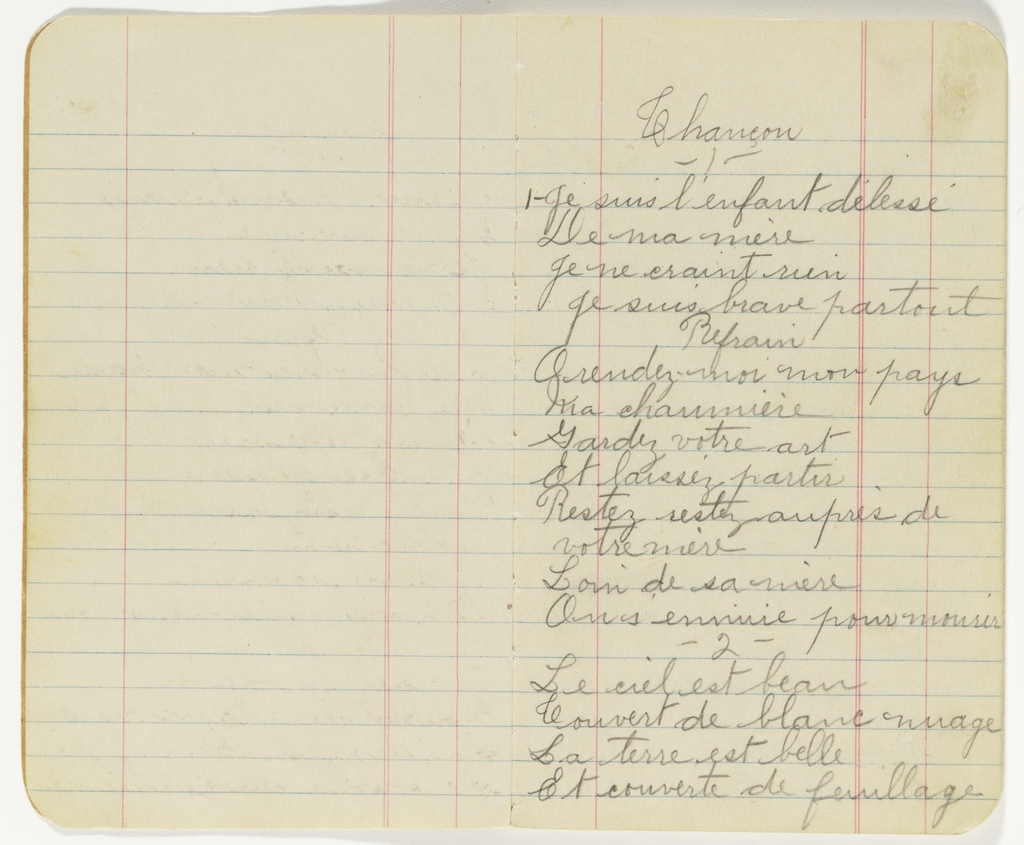 Chançon
- 1 -
1- Je suis l'enfant délessé
De ma mère
Je ne craint rien
Je suis brave partout
Refrain
O rendez-moi mon pays
Ma chaumière
Gardez votre art
Et laissez partir
Restez restez auprès de
votre mère
Loin de sa mère
On s'ennuie pour mourir
- 2 -
Le ciel est beau
Couvert de blanc nuage
La terre est belle
Et couverte de feuillage